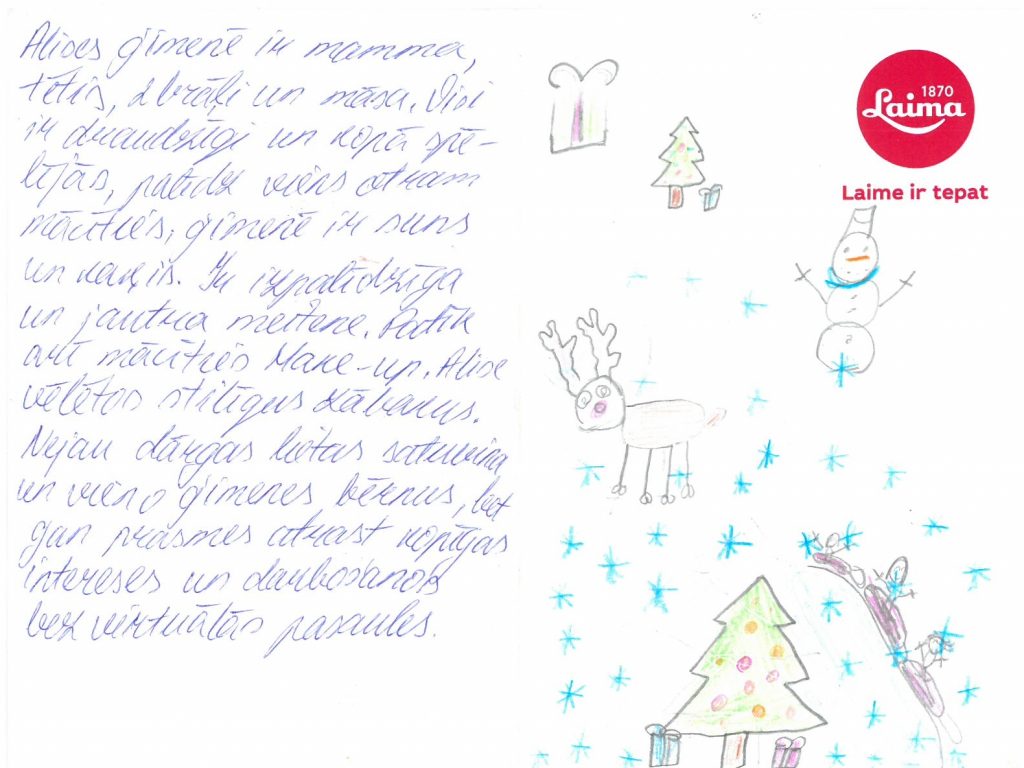 Alises ģimenē ir mamma,
tētis, 2 brāļi un māsa. Visi
ir draudzīgi un kopā spē-
lējās, palīdz viens otram
mācīties, ģimenē ir suns
un kaķis. Ir izpalīdzīga
un jautra meitene. Patīk
arī mācīties Make-up. Alise
vēlētos stilīgus zābakus.
Nejau dārgas lietas satuvina
un vieno ģimenes bērnus, bet
gan prasmes atrast kopīgas
intereses un darbošanos
bez virtuālās pasaules.
1870
Laima
Laime ir tepat